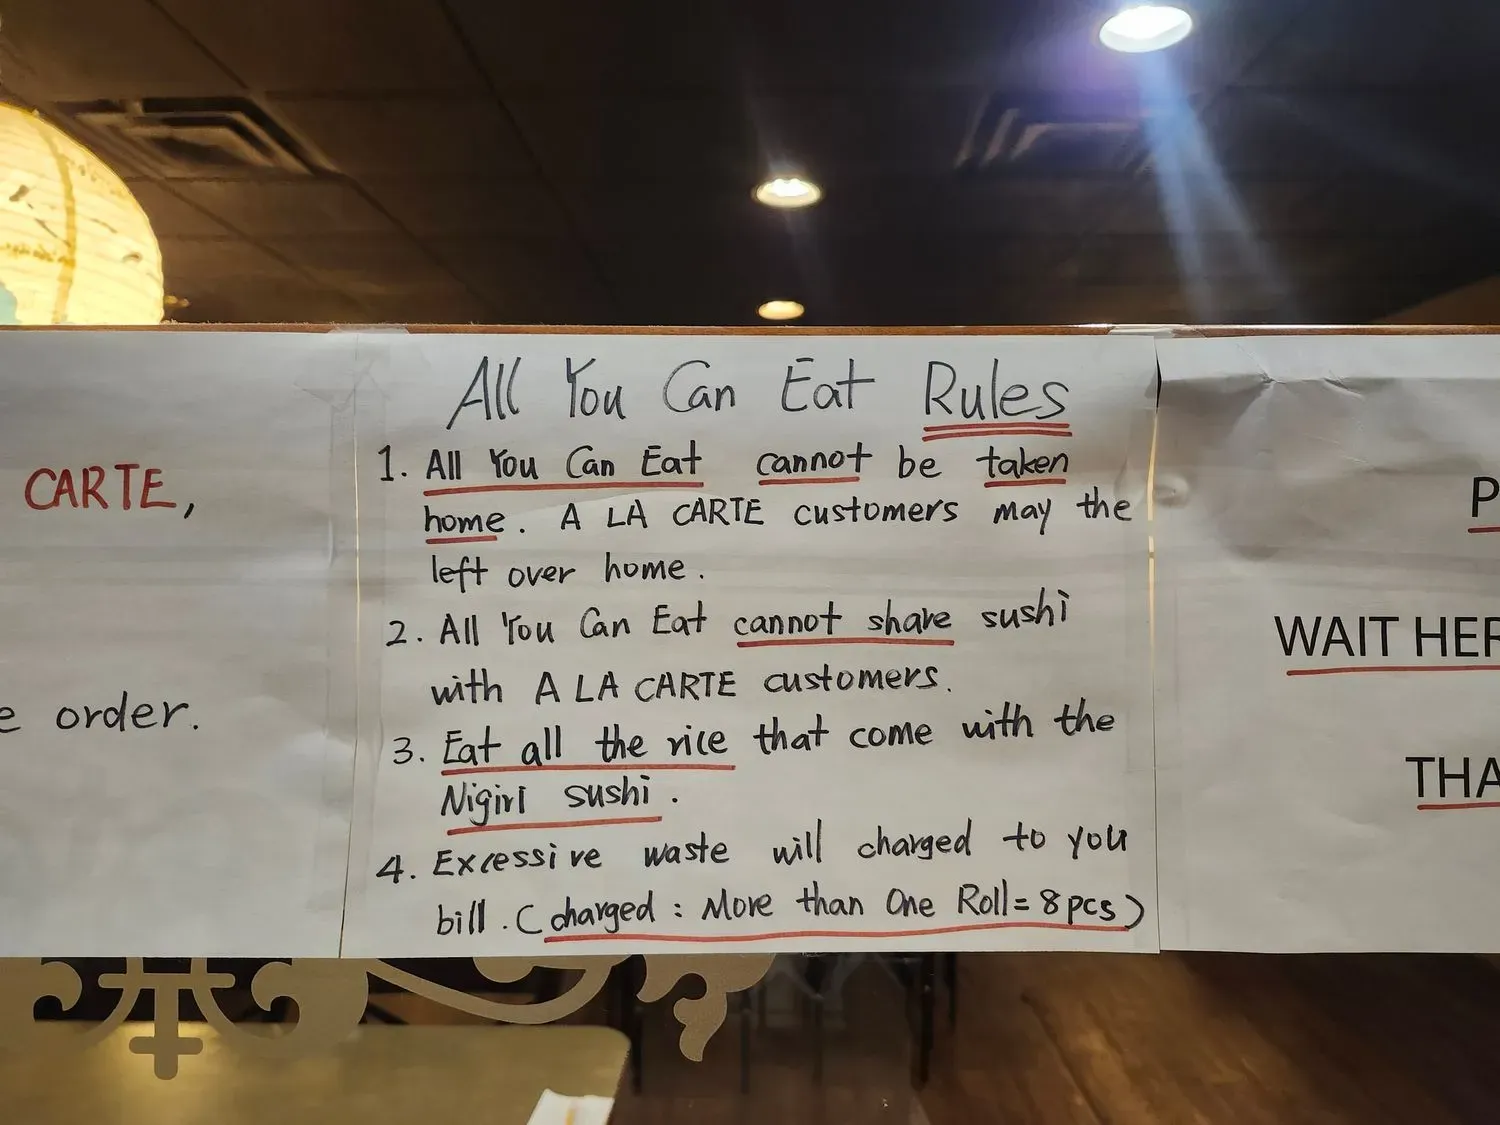 CARTE,
e order.
All You Can Eat Rules
1. All You Can Eat cannot be taken
home. A LA CARTE customers may the
left over home.
2. All You Can Eat cannot share sushi
with A LA CARTE customers.
3. Eat all the rice that come with the
Nigiri sushi.
4. Excessive waste will charged to you
bill. (charged: More than One Roll= 8pcs)
P
WAIT HER
THA